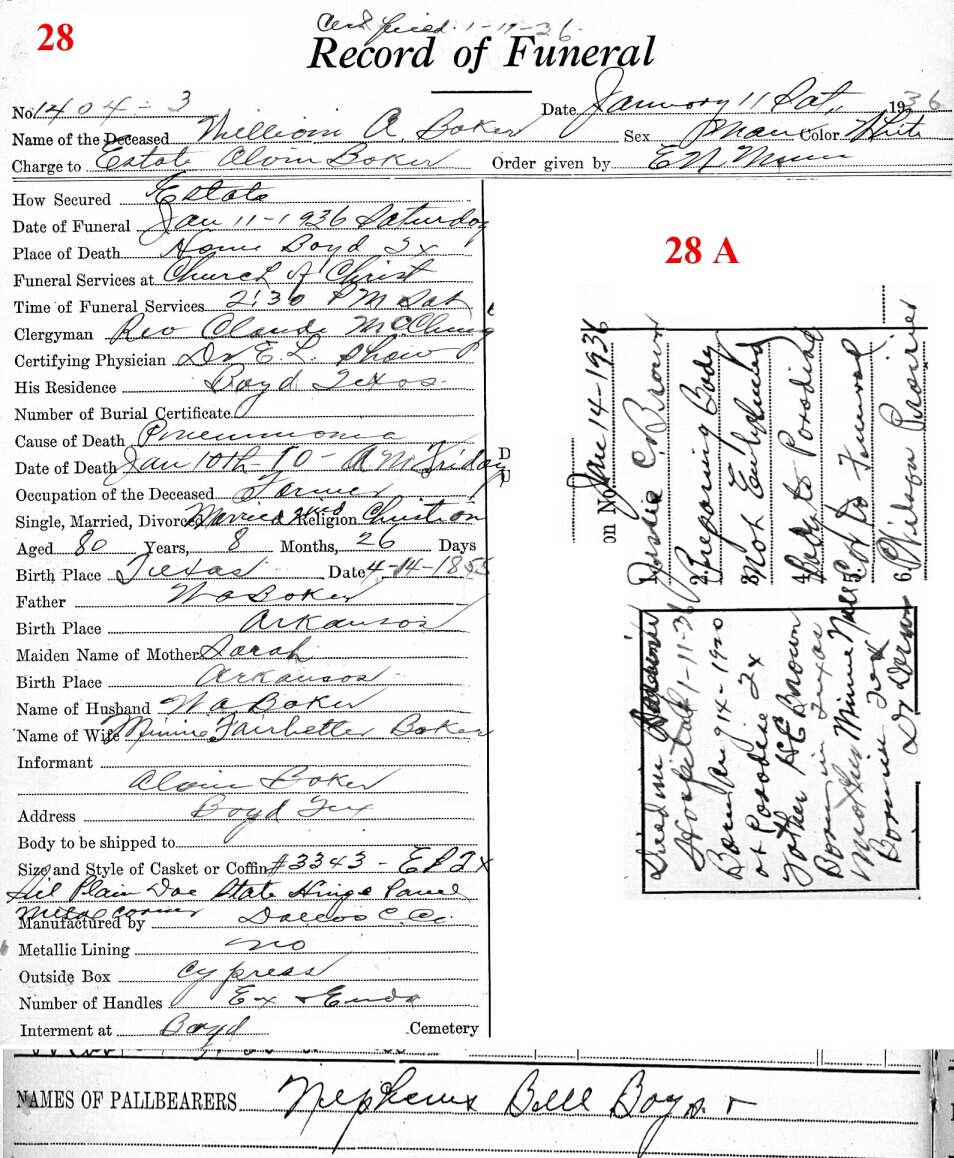 28
Cert filed 1-19-36
Record of Funeral
No. 1404-3 Date January 11 Sat, 1936
Name of the Deceased William A. Baker Sex Man Color White
Charge to Estate Alvin Baker Order given by E N
How Secured Estate
Date of Funeral Jan 11-1936 Saturday
Place of Death Home Boyd Tx
Funeral Services at Church of Christ
Time of Funeral Services 2:30 PM Sat
Clergyman Rev Claude McClung
Certifying Physician Dr E. L. Shaw
His Residence Boyd Texas
Number of Burial Certificate
Cause of Death Pneumonia
Date of Death Jan 10th-10-AM Friday
Occupation of the Deceased Farmer
Single, Married, Divorced Married Religion Christian
Aged 80 Years, 8 Months, 26 Days
Birth Place Texas Date 4-14-1855
Father W A Baker
Birth Place Arkansas
Maiden Name of Mother Sarah
Birth Place Arkansas
Name of Husband W A Baker
Name of Wife Minnie Fairbetter Baker
Informant
Alvin Baker
Address Boyd Tex
Body to be shipped to
Size and Style of Casket or Coffin #3343-
Sil Plain Doe State Hinge Panel
Metal corner
Manufactured by Dallas C. Co.
Metallic Lining no
Outside Box Cypress
Number of Handles Ex & Ends
Interment at Boyd Cemetery
NAMES OF PALLBEARERS Nephews Bell Boys
28 A
on No. Jan 14-1936
1. C. Brown
2. Preparing Body
3. Not Embalmed
4. Body to Paradise
5. for Funeral
6. Wilson
Died in
Hospital 1-11-36
Born Aug 14-1920
at Paradise Tx
Father H E Brown
Born in Texas
Mother Minnie Nall
Born in Tex
Dr